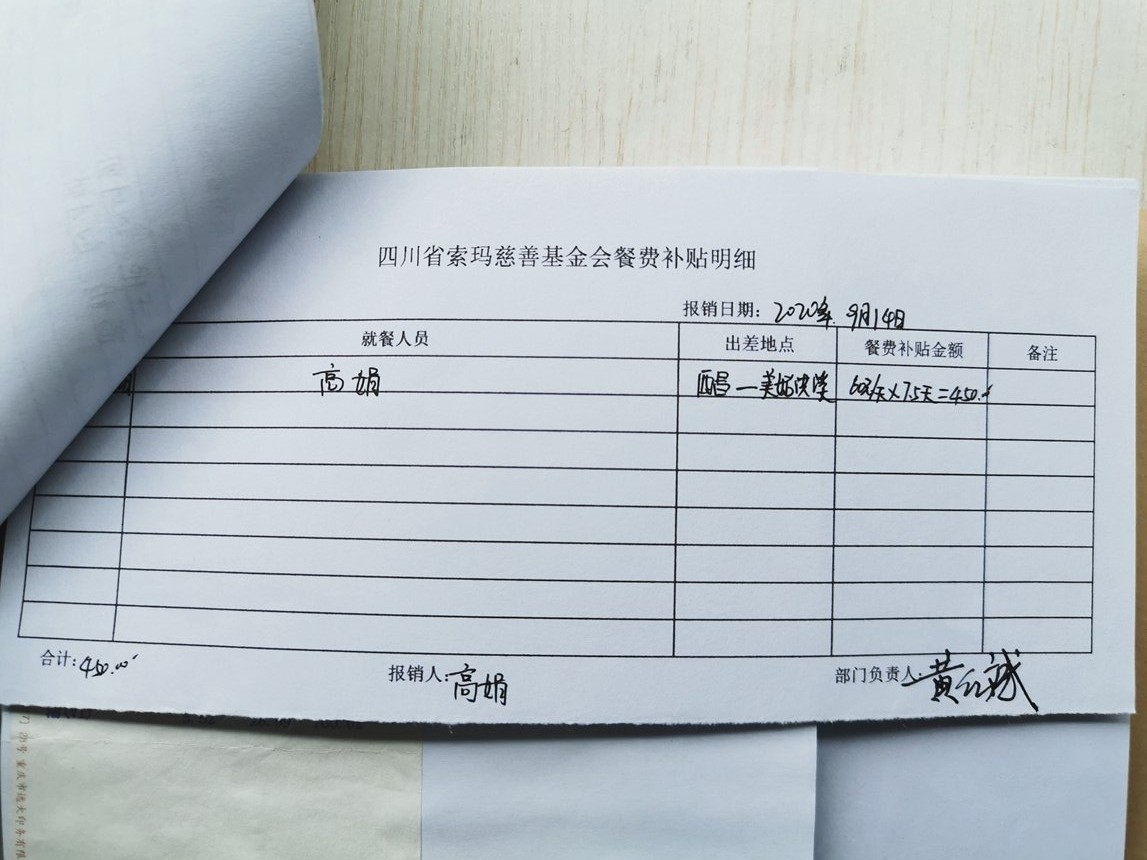 四川省索玛慈善基金会餐费补贴明细
报销日期：2020年9月14日
就餐人员 出差地点 餐费补贴金额 备注
高娟 西昌—美姑 60元/天×7.5天=450.
合计：450.00
报销人：高娟
部门负责人：黄红斌
重庆市远大印务有限